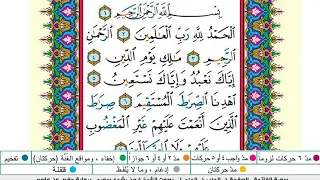 بِسْمِ ٱللَّهِ ٱلرَّحْمَٰنِ ٱلرَّحِيمِ ١
ٱلْحَمْدُ لِلَّهِ رَبِّ ٱلْعَٰلَمِينَ ٢ ٱلرَّحْمَٰنِ
ٱلرَّحِيمِ ٣ مَٰلِكِ يَوْمِ ٱلدِّينِ ٤
إِيَّاكَ نَعْبُدُ وَإِيَّاكَ نَسْتَعِينُ ٥
ٱهْدِنَا ٱلصِّرَٰطَ ٱلْمُسْتَقِيمَ ٦ صِرَٰطَ
ٱلَّذِينَ أَنْعَمْتَ عَلَيْهِمْ غَيْرِ ٱلْمَغْضُوبِ
مدّ ٦ حركات لزوماً مدّ ٢ أو ٤ أو ٦ جوازاً إخفاء، ومواقع الغُنَّة (حركتان) تفخيم
مدّ حركتان إدغام، وما لا يُلفَظ قلقلة